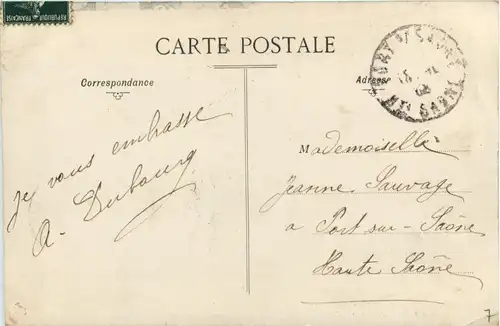 REPUBLIQUE FRANÇAISE
CARTE POSTALE
Correspondance
Adresse
HTE SAÔNE
Je vous embrasse
A - Dubourg
Mademoiselle
Jeanne Sauvage
a Port-sur-Saône
Haute Saône
7